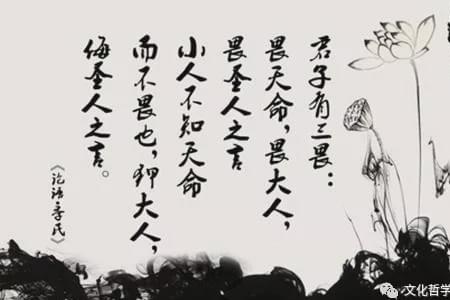 君子有三畏：
畏天命，畏大人，
畏圣人之言
小人不知天命
而不畏也，狎大人，
侮圣人之言。
《论语季氏》
·文化哲学